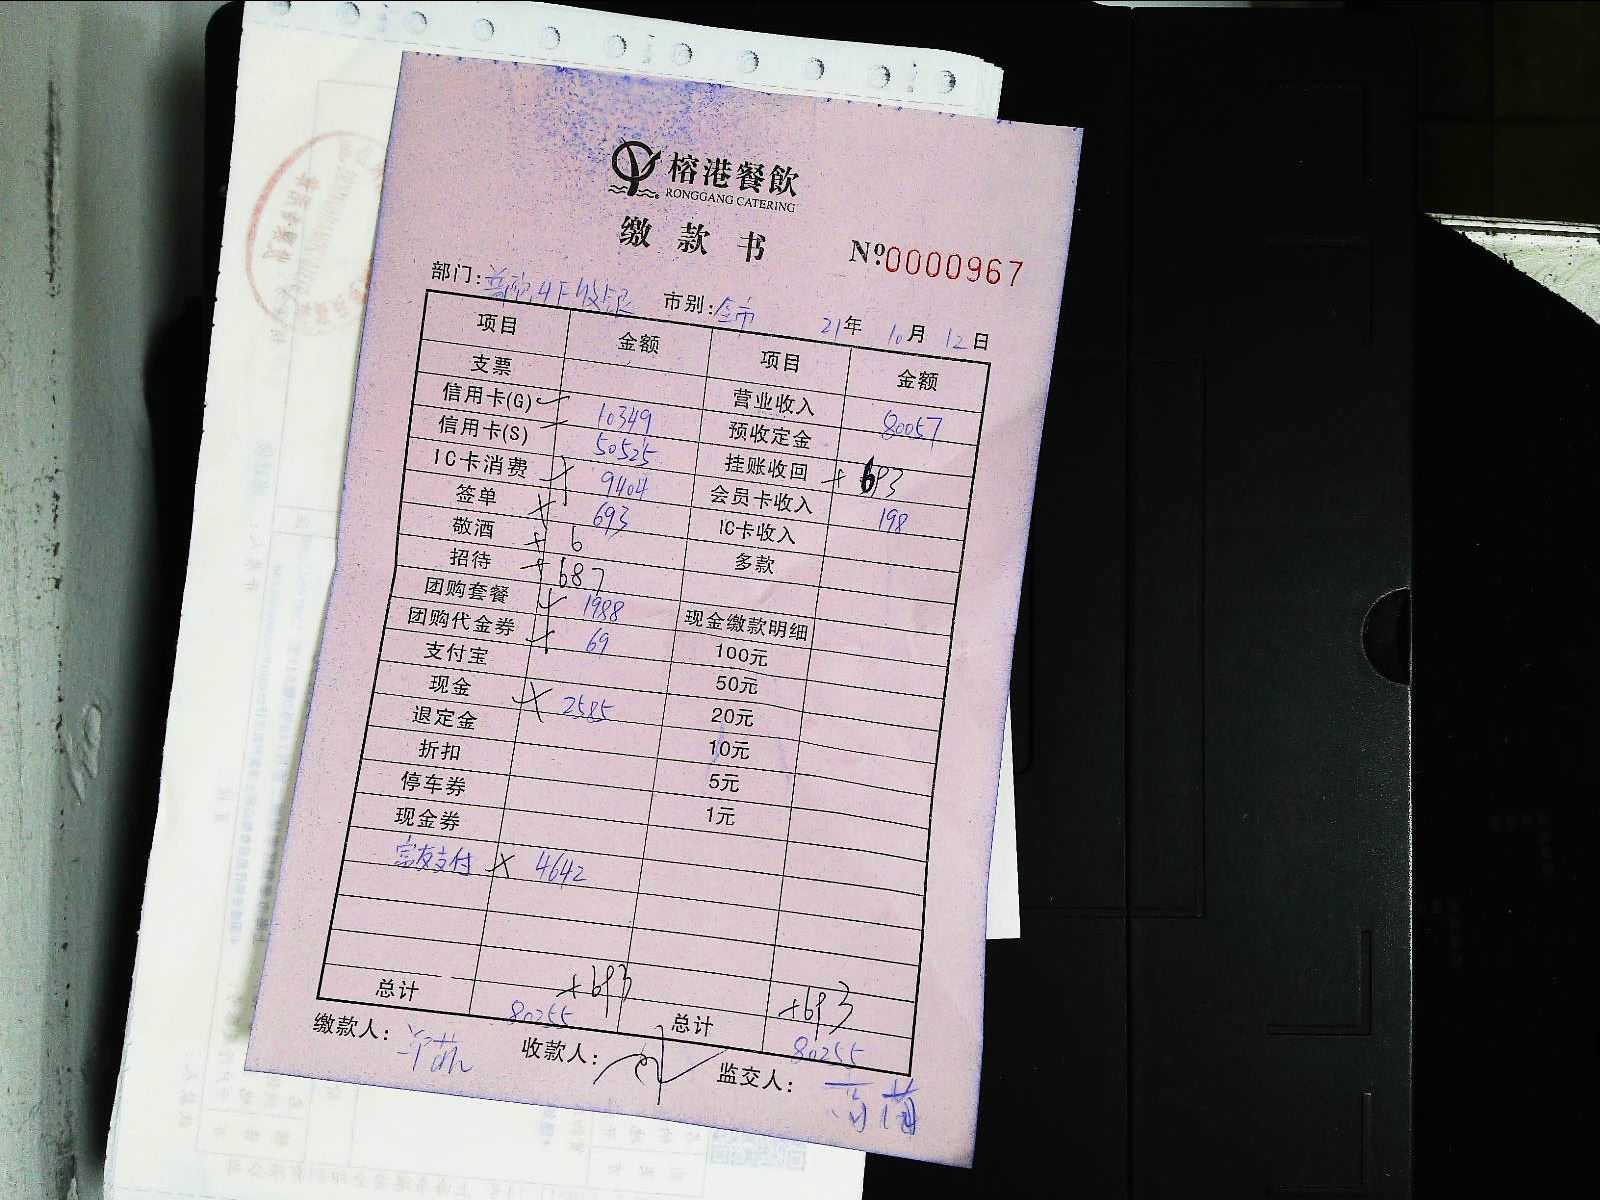 榕港餐飲
RONGGANG CATERING
缴款书
№0000967
部门: 市别: 全市 21年 10月 12日
项目 金额 项目 金额
支票 营业收入 80057
信用卡(G) 10349 预收定金
信用卡(S) 50525 挂账收回 +693
IC卡消费 9404 会员卡收入 198
签单 693 IC卡收入
敬酒 + 6 多款
招待 +687
团购套餐 1988 现金缴款明细
团购代金券 69 100元
支付宝 50元
现金 2585 20元
退定金 10元
折扣 5元
停车券 1元
现金券
支付 4642
总计 +693 80255 总计 +693 80255
缴款人: 收款人: 监交人: